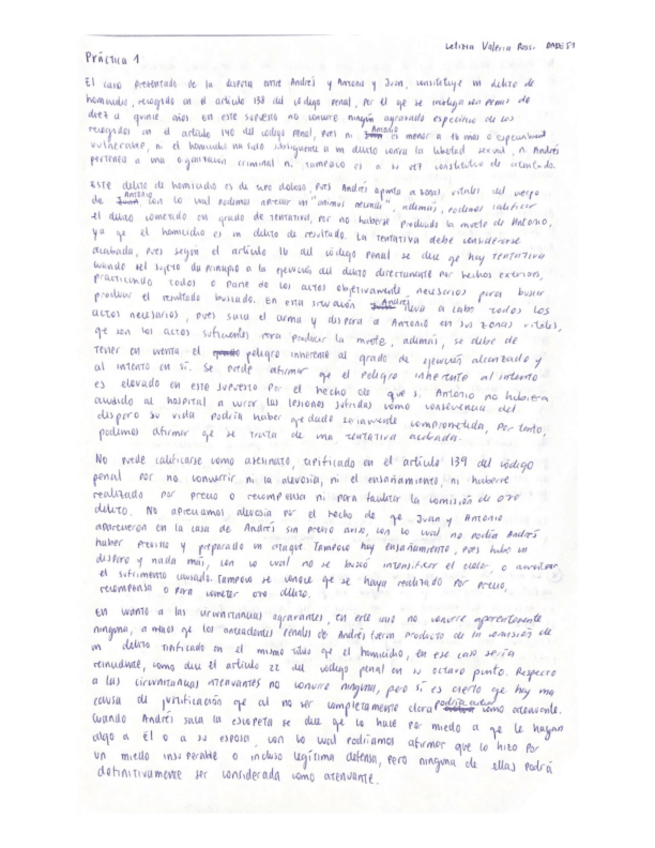 Letizia Valeria Rossi DADE E1
Práctica 1
El caso presentado de la disputa entre Andrés y Antonio y Juan, constituye un delito de
homicidio, recogido en el artículo 138 del código penal, por el qe se castiga con penas de
diez a quince años en este supuesto no concurre ningún agravado específico de los
recogidos en el artículo 140 del código penal, pues ni Antonio es menor a 16 años o especialmente
vulnerable, ni el homicidio ha sido subsiguiente a un delito contra la libertad sexual, ni Andrés
pertenece a una organización criminal ni tampoco es a su vez constitutivo de atentado.
Este delito de homicidio es de tipo doloso, pues Andrés apunta a zonas vitales del cuerpo
de Antonio, con lo cual podemos apreciar un "animus necandi", además, podemos calificar
el delito cometido en grado de tentativa, por no haberse producido la muerte de Antonio,
ya qe el homicidio es un delito de resultado. La tentativa debe considerarse
acabada, pues según el artículo 16 del código penal se dice qe hay tentativa
cuando el sujeto da principio a la ejecución del delito directamente por hechos exteriores,
practicando todos o parte de los actos objetivamente necesarios para buscar
producir el resultado buscado. En esta situación Andrés lleva a cabo todos los
actos necesarios, pues saca el arma y dispara a Antonio en sus zonas vitales,
qe son los actos suficientes para producir la muerte, además, se debe de
tener en cuenta el peligro inherente al grado de ejecución alcanzado y
al intento en sí. Se puede afirmar qe el peligro inherente al intento
es elevado en este supuesto por el hecho de que si Antonio no hubiera
acudido al hospital a curar las lesiones sufridas como consecuencia del
disparo su vida podría haber qedado seriamente comprometida, Por tanto,
podemos afirmar qe se trata de una tentativa acabada.
No puede calificarse como asesinato, tipificado en el artículo 139 del código
penal por no concurrir ni la alevosía, ni el ensañamiento, ni haberse
realizado por precio o recompensa ni para facilitar la comisión de otro
delito. No apreciamos alevosía por el hecho de qe Juan y Antonio
aparecieron en la casa de Andrés sin previo aviso, con lo cual no podía Andrés
haber previsto y preparado un ataque. Tampoco hay ensañamiento, pues hubo un
disparo y nada más, con lo cual no se buscó intensificar el dolor, o aumentar
el sufrimiento causado. Tampoco se conoce qe se haya realizado por precio,
recompensa o para cometer otro delito.
En cuanto a las circunstancias agravantes, en este caso no concurre aparentemente
ninguna, a menos qe los antecedentes penales de Andrés fueran producto de la comisión de
un delito tipificado en el mismo título qe el homicidio, en ese caso sería
reincidente, como dice el artículo 22 del código penal en su octavo punto. Respecto
a las circunstancias atenuantes no concurre ninguna, pero sí es cierto qe hay una
causa de justificación qe al no ser completamente clara podría actuar como atenuante.
Cuando Andrés saca la escopeta se dice qe lo hace por miedo a qe le hagan
algo a él o a su esposa, con lo cual podríamos afirmar que lo hizo por
un miedo insuperable o incluso legítima defensa, pero ninguna de ellas podrá
definitivamente ser considerada como atenuante.